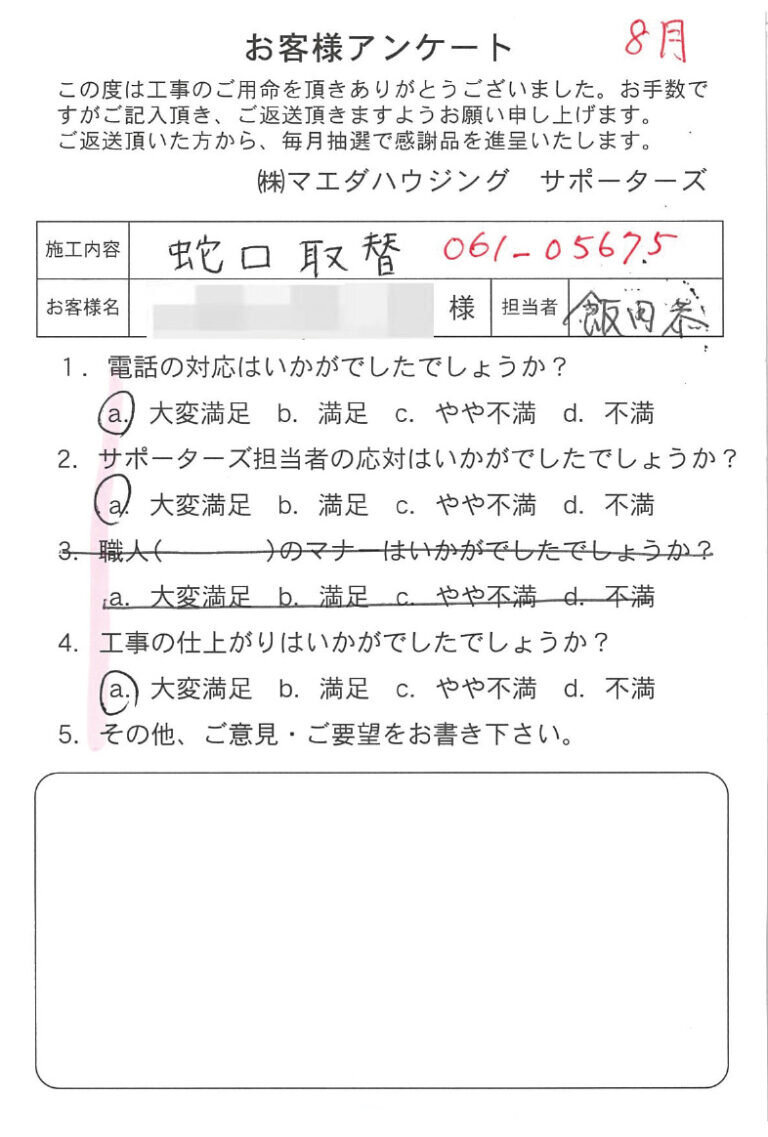 お客様アンケート 8月
この度は工事のご用命を頂きありがとうございました。お手数で
すがご記入頂き、ご返送頂きますようお願い申し上げます。
ご返送頂いた方から、毎月抽選で感謝品を進呈いたします。
㈱マエダハウジング　サポーターズ
施工内容 蛇口取替 061-05675
お客様名 様 担当者 飯田恭
1. 電話の対応はいかがでしたでしょうか？
a. 大変満足 b. 満足 c. やや不満 d. 不満
2. サポーターズ担当者の応対はいかがでしたでしょうか？
a. 大変満足 b. 満足 c. やや不満 d. 不満
3. 職人(　　　　)のマナーはいかがでしたでしょうか？
a. 大変満足 b. 満足 c. やや不満 d. 不満
4. 工事の仕上がりはいかがでしたでしょうか？
a. 大変満足 b. 満足 c. やや不満 d. 不満
5. その他、ご意見・ご要望をお書き下さい。